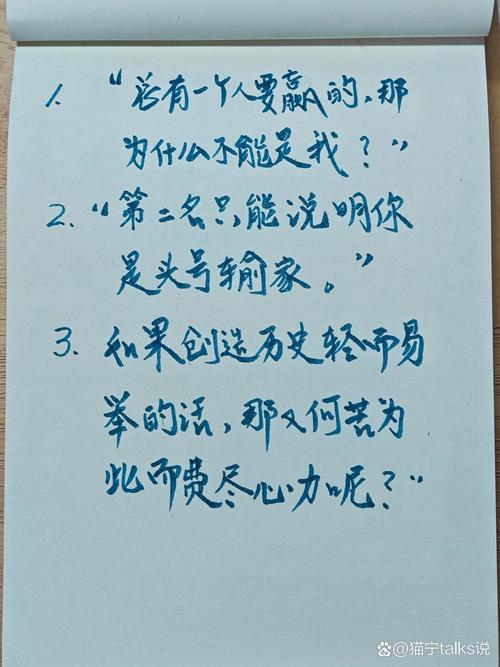 1. “总有一个人要赢的，那
为什么不能是我？”
2. “第二名只能说明你
是头号输家。”
3. 如果创造历史轻而易
举的话，那又何苦为
此而费尽心力呢？”
猫宁talks说